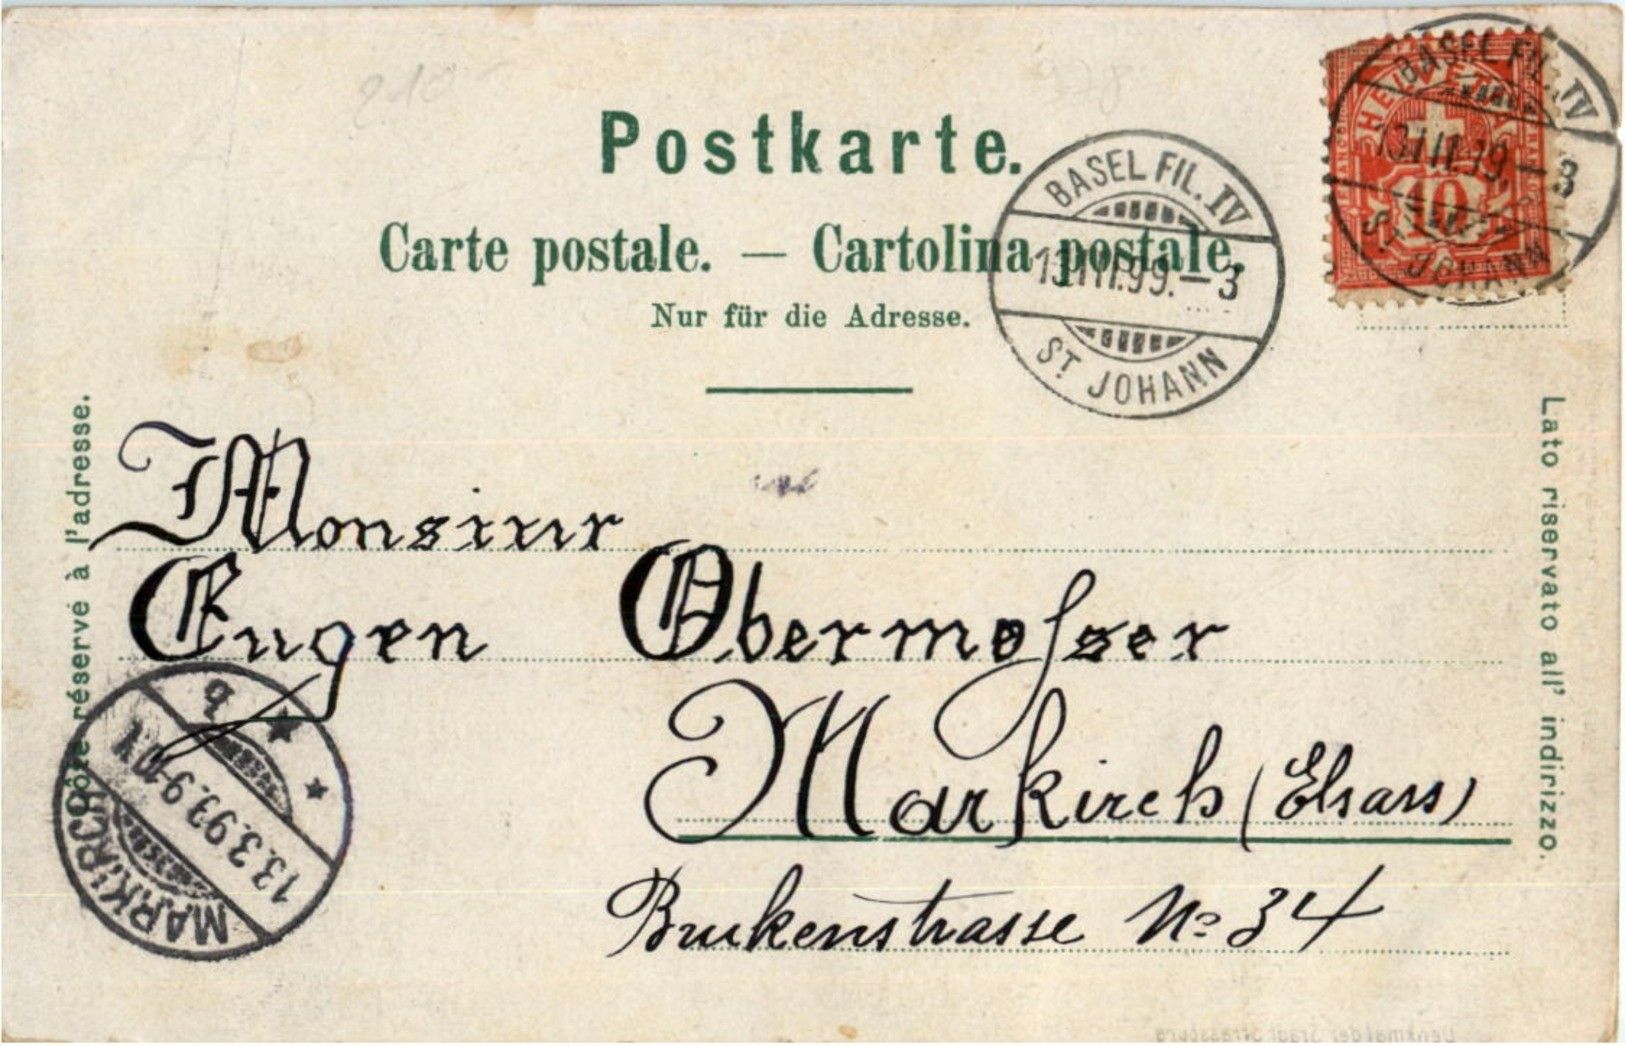 Postkarte.
Carte postale. — Cartolina postale.
Nur für die Adresse.
BASEL FIL. IV
13.III.99.–3
ST. JOHANN
BASEL FIL. IV
13.III.99.–3
ST. JOHANN
HELVETIA
10
Côté réservé à l'adresse.
Lato riservato all' indirizzo.
Monsieur
Eugen Obermosser
Markirch (Elsass)
Brukenstrasse No 34
MARKIRCH
13.3.99.9-10V.
b
Denkmal der Stadt Strassburg